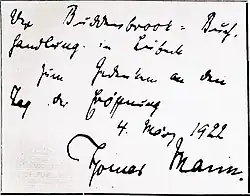 Der Buddenbrook-Buch-
handlung in Lübeck
zum Gedenken an den
Tag der Eröffnung
4. März 1922
Thomas Mann.